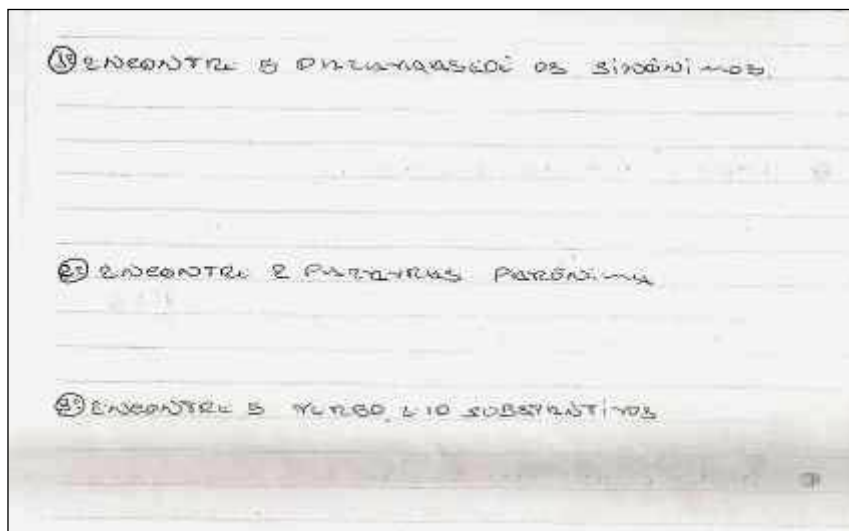 1º ENCONTRE 5 PALAVRAS E DÊ OS SINÔNIMOS.
2º ENCONTRE 2 PALAVRAS PARÔNIMA
3º ENCONTRE 5 VERBO E 10 SUBSTANTIVOS